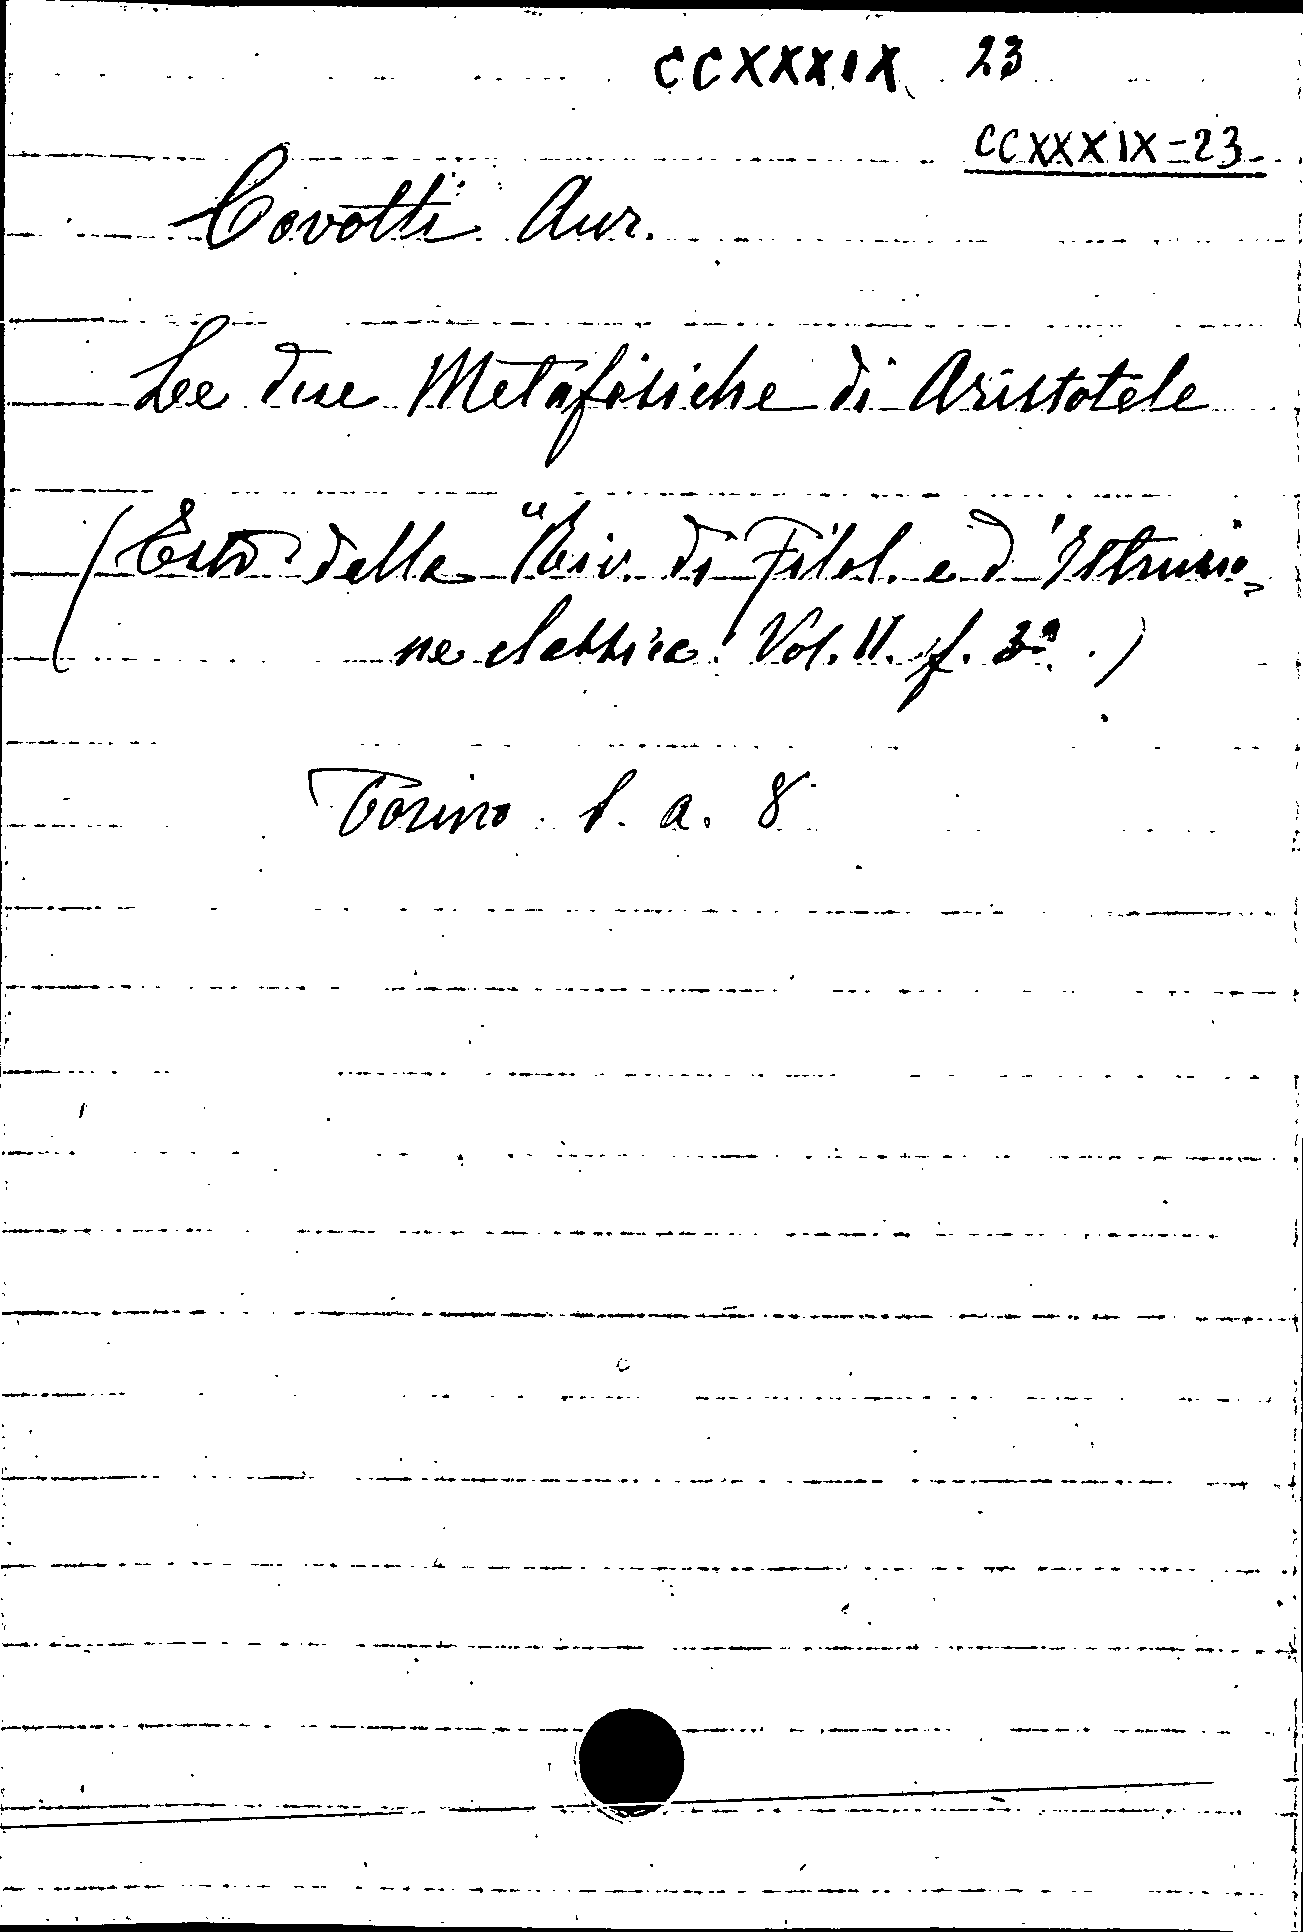 CCXXXIX 23
CCXXXIX-23
Covotti Aur.
Le due Metafisiche di Aristotele
(Estr. dalla "Riv. di Filol. e d'Istruzio-
ne classica" Vol. II. f. 3ª.)
Torino s. a. 8